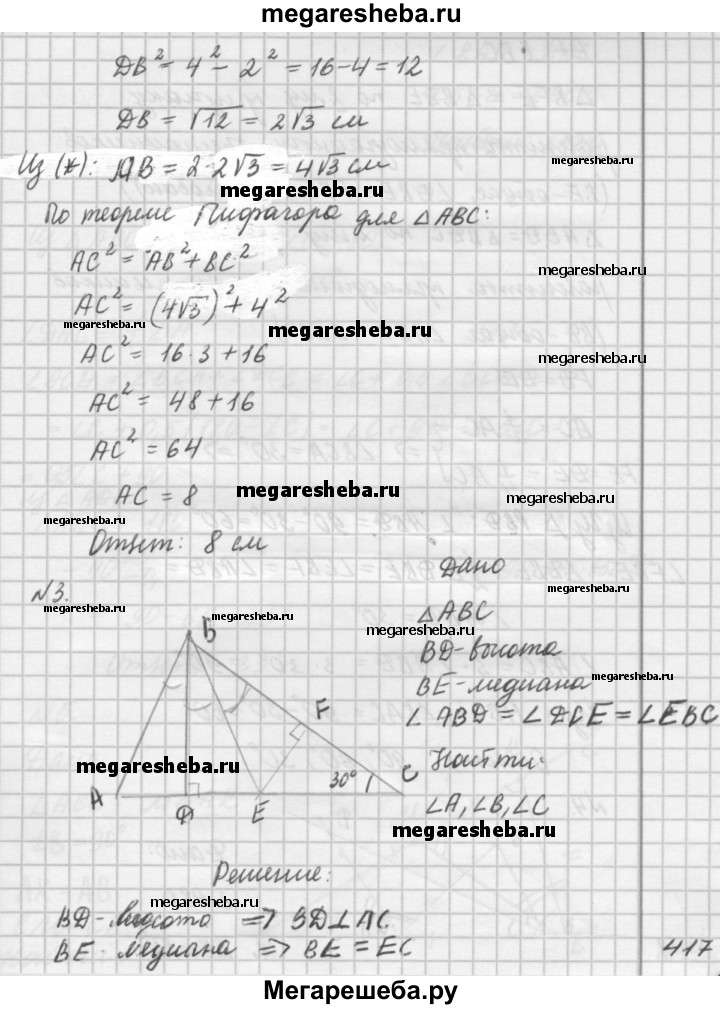 megaresheba.ru
DB² = 4² - 2² = 16 - 4 = 12
DB = √12 = 2√3 см
Из (*): AB = 2·2√3 = 4√3 см
megaresheba.ru
megaresheba.ru
По теореме Пифагора для △ABC:
AC² = AB² + BC²
megaresheba.ru
AC² = (4√3)² + 4²
megaresheba.ru
megaresheba.ru
AC² = 16·3 + 16
megaresheba.ru
AC² = 48 + 16
AC² = 64
AC = 8
megaresheba.ru
megaresheba.ru
megaresheba.ru
Ответ: 8 см
megaresheba.ru
Дано
№3.
megaresheba.ru
△ABC
megaresheba.ru
B
BD-высота
BE-медиана
megaresheba.ru
∠ABD = ∠DCE = ∠EBC
F
Найти:
megaresheba.ru
30°
C
A
D
E
∠A, ∠B, ∠C
megaresheba.ru
Решение:
megaresheba.ru
BD-высота => BD⊥AC.
BE-медиана => BE = EC
417
Мегарешеба.ру